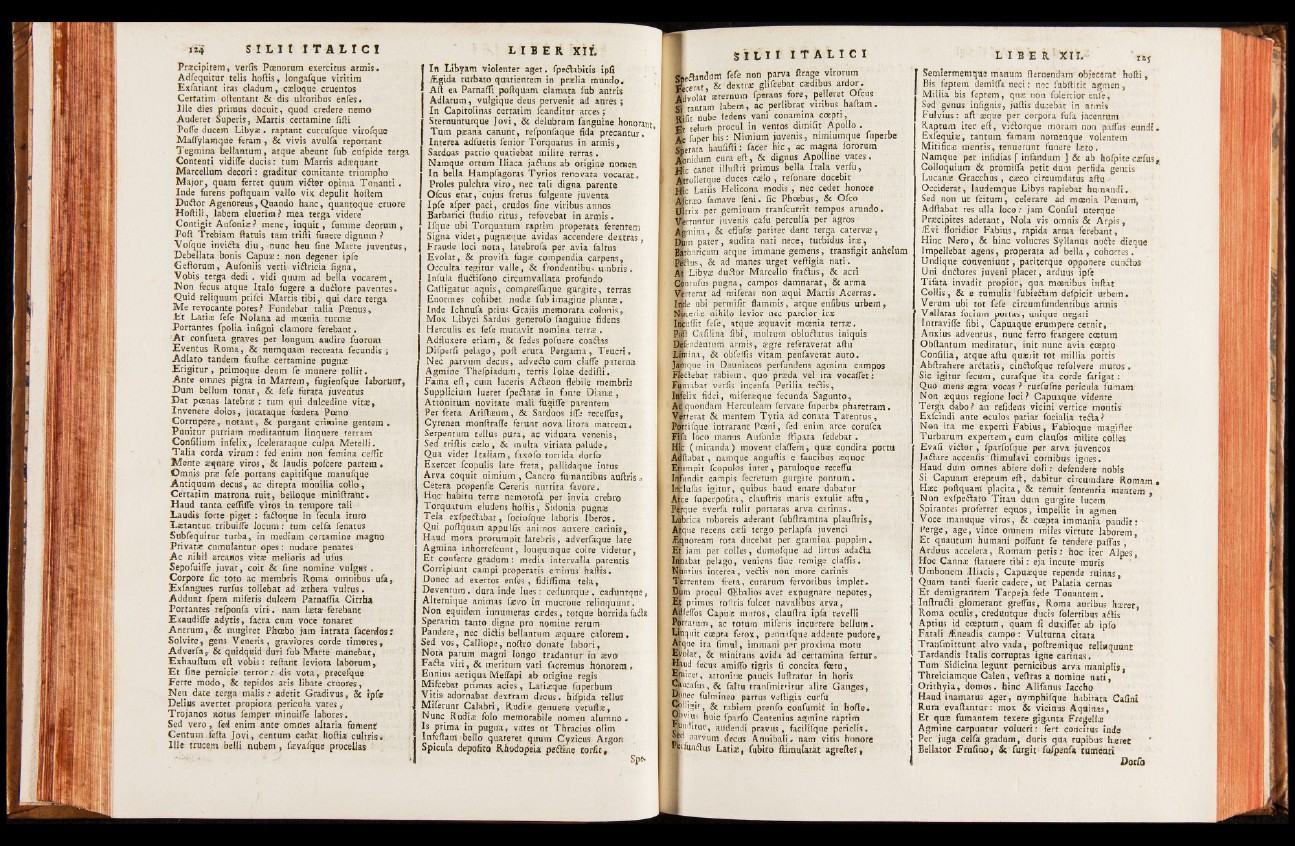 124 SILII ITALICI
Præcipitem, versis Pœnorum exercitus armis.
Adsequitur telis hostis, longasque viritim
Exsatiant iras cladum, cæloque cruentos
Certatim ostentant & dis ultoribus enses.
Ille dies primus docuit, quod credere nemo
Auderet Superis, Martis certamine sisti
Posse ducem Libyæ. raptant currusque virosque
Massylamque feram, & vivis avulsa reportant
Tegmina bellantum, atque abeunt sub cuspide terga
Contenti vidisse ducis: tum Martis adæquant
Marcellum decori: graditur comitante triumpho
Major, quam ferret quum victor opima Tonanti.
Inde furens postquam vallo vix depulit hostem
Ductor Agenoreus, Quando hanc, quantoque cruore
Hostili, labem eluerim? mea terga videre
Contigit Ausoniæ? mene, inquit, summe deorum,
Post Trebiam statuis tam tristi funere dignum?
Vosque invicta diu, nunc heu sine Marte juventus,
Debellata bonis Capuæ: non degener ipse
Gestorum, Ausoniis verti victricia signa,
Vobis terga dedi. vidi quum ad bella vocarem,
Non secus atque Italo fugere a ductore paventes.
Quid reliquum prisci Martis tibi, qui dare terga
Me revocante potes? Fundebat talia Pœnus,
Et Latiæ sese Nolana ad mœnia turmæ
Portantes spolia insigni clamore ferebant.
At consueta graves per longum audire suorum
Eventus Roma, & numquam recreata secundis;
Adlato tandem faustæ certamine pugnæ
Erigitur, primoque deum se munere tollit.
Ante omnes pigra in Martem, fugiensque laborum,
Dum bellum tonat, & sese furata juventus
Dat pœnas latebræ: tum qui dulcedine vitæ,
Invenere dolos, jurataque fœdera Pœno
Corrupere, notant, & purgant crimine gentem.
Punitur patriam meditantum linquere terram
Consilium infelix, sceleratæque culpa Metelli.
Talia corda virum: sed enim non femina cessit
Mente æquare viros, & laudis poscere partem.
Omnis præ sese portans capitisque manusque
Antiquum decus, ac direpta monilia collo,
Certatim matrona ruit, belloque ministrant.
Haud tanta cessisse viros in tempore tali
Laudis forte piget: factoque in secula ituro
Lætantur tribuisse locum: tum celsa senatus
Subsequitur turba, in medium certamine magno
Privatæ cumulantur opes: nudare penates
Ac nihil arcanos vitæ melioris ad usus
Seposuisse juvat, coit & sine nomine vulgus.
Corpore sic toto ac membris Roma omnibus usa,
Exsangues rursus tollebat ad æthera vultus.
Addunt spem miseris dulcem Parnassia Cirrha
Portantes responsa viri. nam læta ferebant
Exaudisse adytis, sacra cum voce tonaret
Antrum, & mugiret Phœbo jam intrata sacerdos:
Solvite, gens Veneris, graviores corde timores,
Adversa, & quidquid duri sub Marte manebat,
Exhaustum est vobis: restant leviora laborum,
Et sine pernicie terror: dis vota, precesque
Ferte modo, & tepidos aris libate cruores,
Neu date terga malis: aderit Gradivus, & ipse
Delius avertet propiora pericula vates,
Trojanos notus semper minuisse labores.
Sed vero, sed enim ante omnes altaria fument
Centum festa Jovi, centum cadat hostia cultris.
Ille trucem belli nubem, sævasque procellas
LIBER XII.
In Libyam violenter aget. spectabitis ipsi
Ægida turbato quatientem in prælia mundo.
Ast ea Parnassi postquam clamata sub antris
Adlatum, vulgique deus pervenit ad aures;
In Capitolinas certatim scanditur arces;
Sternunturque Jovi, & delubrum sanguine honorant,
Tum pæana canunt, responsaque fida precantur.
Interea adsuetis senior Torquatus in armis,
Sardoas patrio quatiebat milite terras.
Namque ortum Iliaca jactans ab origine nomen
In bella Hampsagoras Tyrios renovata vocarat.
Proles pulchra viro, nec tali digna parente
Oscus erat, cujus fretus fulgente juventa
Ipse asper paci, crudos sine viribus annos
Barbarici studio ritus, refovebat in armis.
Isque ubi Torquatum raptim properata ferentem
Signa videt, pugnæque avidas accendere dextras,
Fraude loci nota, latebrosa per avia saltus
Evolat, & provisa fugæ compendia carpens,
Occulta tegitur valle, & frondentibus umbris.
Insula fluctisono circumvallata profundo
Castigatur aquis, compressaque gurgite, terras
Enormes cohibet nudæ sub imagine plantæ.
Inde Ichnusa prius Grajis memorata colonis,
Mox Libyci Sardus generoso sanguine fidens
Herculis ex sese mutavit nomina terræ.
Adfluxere etiam, & sedes posuere coactas
Dispersi pelago, post eruta Pergama, Teucri.
Nec parvum decus, advecto cum classe paterna
Agmine Thespiadum, terris Iolae dedisti.
Fama est, cum laceris Actæon flebile membris
Supplicium lueret spectatæ in fonte Dianæ,
Attonitum novitate mali fugisse parentem
Per freta Aristæum, & Sardoos isse recessus,
Cyrenen monstrasse ferunt nova litora matrem.
Serpentum tellus pura, ac viduata venenis,
Sed tristis cælo, & multa vitiata palude.
Qua videt Italiam, saxoso torrida dorso
Exercet scopulis late freta, pallidaque intus
Arva coquit nimium, Cancro fumantibus austris.
Cetera propensæ Cereris nutrita favore.
Hoc habitu terræ nemorosa per invia crebro
Torquatum eludens hostis, Sidonia pugnæ
Tela exspectabat, sociosque laboris Iberos.
Qui postquam appulsis animos auxere carinis,
Haud mora prorumpit latebris, adversæque late
Agmina inhorrescunt, longumque coire videtur,
Et conferre gradum: media intervalla patentis
Corripiunt campi properatis eminus hastis.
Donec ad exertos enses, fidissima tela,
Deventum. dura inde lues: ceduntque, caduntque,
Alternique animas sævo in mucrone relinquunt.
Non equidem innumeras cædes, totque horrida facta
Sperarim tanto digne pro nomine rerum
Pandere, nec dictis bellantum æquare calorem.
Sed vos, Calliope, nostro donate labori,
Nota parum magni longo tradantur in ævo
Facta viri, & meritum vati sacremus honorem.
Ennius antiqua Messapi ab origine regis
Miscebat primas acies, Latiæque superbum
Vitis adornabat dextram decus. hispida tellus
Miserunt Calabri, Rudiæ genuere vetustæ,
Nunc Rudiæ solo memorabile nomen alumno.
Is prima in pugna, vates ut Thracius olim
Infestam bello quateret quum Cyzicus Argon
Spicula deposito Rhodopeia pectine torsit,
Spe-
SILII ITALICI
Spectandum sese non parva strage virorum
Fecerat, & dextræ gliscebat cædibus ardor.
Advolat æternum sperans fore, pelleret Oscus
Si tantam labem, ac perlibrat viribus hastam.
Risit nube sedens vani conamina cœpti,
Et telum procul in ventos dimisit Apollo.
Ac super his: Nimium juvenis, nimiumque superbe
Sperata hausisti: sacer hic, ac magna sororum
Aonidum cura est, & dignus Apolline vates.
Hic canet illustri primus bella Itala versu,
Attolletque duces cælo, resonare docebit
Hic Latiis Helicona modis, nec cedet honore
Ascræo famave seni. sic Phœbus, & Osco
Ultrix per geminum transcurrit tempus arundo.
Vertuntur juvenis casu perculsa per agros
Agmina, & effusæ pariter dant terga catervæ,
Dum pater, audita nati nece, turbidus iræ,
Barbaricum atque immane gemens, transfigit anhelum
Pectus, & ad manes urget vestigia nati.
At Libyæ ductor Marcello fractus, & acri
Contusus pugna, campos damnarat, & arma
Verterat ad miseras non æqui Martis Acerras.
Inde ubi permisit flammis, atque ensibus urbem,
Nuceriæ nihilo levior nec parcior iræ
Incussit sese, atque æquavit mœnia terræ.
Post Casilina sibi, multum obluctatus iniquis
Defendentum armis, ægre reseraverat astu
Limina, & obsessis vitam pensaverat auro.
Jamque in Dauniacos perfundens agmina campos
Flectebat rabiem, quo præda vel ira vocasset:
Fumabat versis incensa Perilia tectis,
Infelix fidei, miseræque secunda Sagunto,
At quondam Herculeam servare superba pharetram.
Verterat & mentem Tyria ad conata Tarentus,
Portisque intrarant Pœni, sed enim arce corusca
Fisa loco manus Ausoniæ stipata sedebat.
Hic (miranda) movens classem, quæ condita portu
Adstabat, namque angustis e faucibus æquor
Erumpit scopulos inter, patuloque recessu
Infundit campis secretum gurgite pontum.
Inclusas igitur, quibus haud enare dabatur
Arce superposita, claustris maris extulit astu,
Perque aversa tulit portatas arva carinas.
Lubrica roboreis aderant substramina plaustris,
Atque recens cæsi tergo perlapsa juvenci
Æquoream rota ducebat per gramina puppim.
Et jam per colles, dumosque ad littus adacta
Innabat pelago, veniens sine remige classis.
Nuntius interea, vectis non more carinis
Terrentem freta, curarum fervoribus implet.
Dum procul Œbalios avet expugnare nepotes,
Et primus rostris sulcet navalibus arva,
Adsessos Capuæ muros, claustra ipsa revelli
Portarum, ac totum miseris incurrere bellum.
Linquit cœpta ferox, pennisque addente pudore,
Atque ira simul, immani per proxima motu
Evolat, & minitans avida ad certamina fertur.
Haud secus amisso tigris si concita fœtu,
Emicet, attonitæ paucis lustratur in horis
Caucasus, & saltu transmittitur alite Ganges,
Donec fulmineo partus vestigia cursu
Colligit, & rabiem prenso consumit in hoste.
Obvius huic sparso Centenius agmine raptim
Funditur, audendi pravus, facilisque periclis.
Sed parvum decus Annibali. nam vitis honore
Perfunctus Latiæ, subito stimularat agrestes,
LIBER XII. 125
Semiermemque manum sternendam objecerat hosti,
Bis septem demissa neci: nec substitit agmen,
Millia bis septem, quæ non solertior ense,
Sed genus insignis, justis ducebat in armis
Fulvius: ast æque per corpora fusa jacentum
Raptum iter est, victorque moram non passus eundi.
Exsequiæ, tantum famam nomenque volentem
Mitificæ mentis, tenuerunt funere læto.
Namque per insidias [ infandum ] & ab hospite cæsus,
Colloquium & promissa petit dum perfida gentis
Lucanæ Gracchus, cæco circumdatus astu
Occiderat, laudemque Libys rapiebat humandi.
Sed non ut scitum, celerare ad mœnia Pœnum,
Adstabat res ulla loco: jam Consul uterque
Præcipites aderant, Nola vis omnis & Arpis,
Ævi floridior Fabius, rapida arma ferebant,
Hinc Nero, & hinc volucres Syllanus nocte dieque
Impellebat agens, properata ad bella, cohortes.
Undique conveniunt, pariterque opponere cunctos
Uni ductores juveni placet, arduus ipse
Tifata invadit propior, qua mœnibus instat
Collis, & e tumulis subjectam despicit urbem.
Verum ubi tot sese circumfundentibus armis
Vallatas socium portas, unique negari
Intravisse sibi, Capuæque erumpere cernit,
Anxius adventus, nunc ferro frangere cœtum
Obstantum meditatur, init nunc avia cœpto
Consilia, atque astu quærit tot millia portis
Abstrahere arctatis, cinctosque resolvere muros.
Sic igitur secum, curasque ita corde fatigat:
Quo mens ægra vocas? rursusne pericula sumam
Non æquus regione loci? Capuaque vidente
Terga dabo? an residens vicini vertice montis
Exscindi ante oculos patiar socialia tecta?
Non ita me experti Fabius, Fabioque magister
Turbarum expertem, cum clausos milite colles
Evasi victor, sparsosque per arva juvencos
Jactare accensis stimulavi cornibus ignes.
Haud dum omnes abiere doli: defendere nobis
Si Capuam ereptum est, dabitur circumdare Romam.
Hæc postquam placita, & tenuit sententia mentem,
Non exspectato Titan dum gurgite lucem
Spirantes proferret equos, impellit in agmen
Voce manuque viros, & cœpta immania pandit:
Perge, age, vince omnem miles virtute laborem,
Et quantum humani possunt se tendere passus,
Arduus accelera, Romam petis: hoc iter Alpes,
Hoc Cannæ statuere tibi: eja incute muris
Umbonem Iliacis, Capuæque repende ruinas,
Quam tanti fuerit cadere, ut Palatia cernas
Et demigrantem Tarpeja sede Tonantem.
Instructi glomerant gressus, Roma auribus hæret,
Roma oculis, creduntque ducis solertibus actis
Aptius id cœptum, quam si duxisset ab ipso
Fatali Æneadis campo: Vulturna citata
Transmittunt alvo vada, postremique relinquunt
Tardandis Italis corruptas igne carinas.
Tum Sidicina legunt pernicibus arva maniplis,
Threiciamque Calen, vestras a nomine nati,
Orithyia, domos. hinc Alifanus Iaccho
Haud inamatus ager, nymphisque habitata Casini
Rura evastantur: mox & vicinus Aquinas,
Et quæ fumantem texere giganta Fregellæ
Agmine carpuntur volucri: fert concitus inde
Per juga celsa gradum, duris qua rupibus hæret
Bellator Frusino, & surgit suspensa tumenti
Dorso